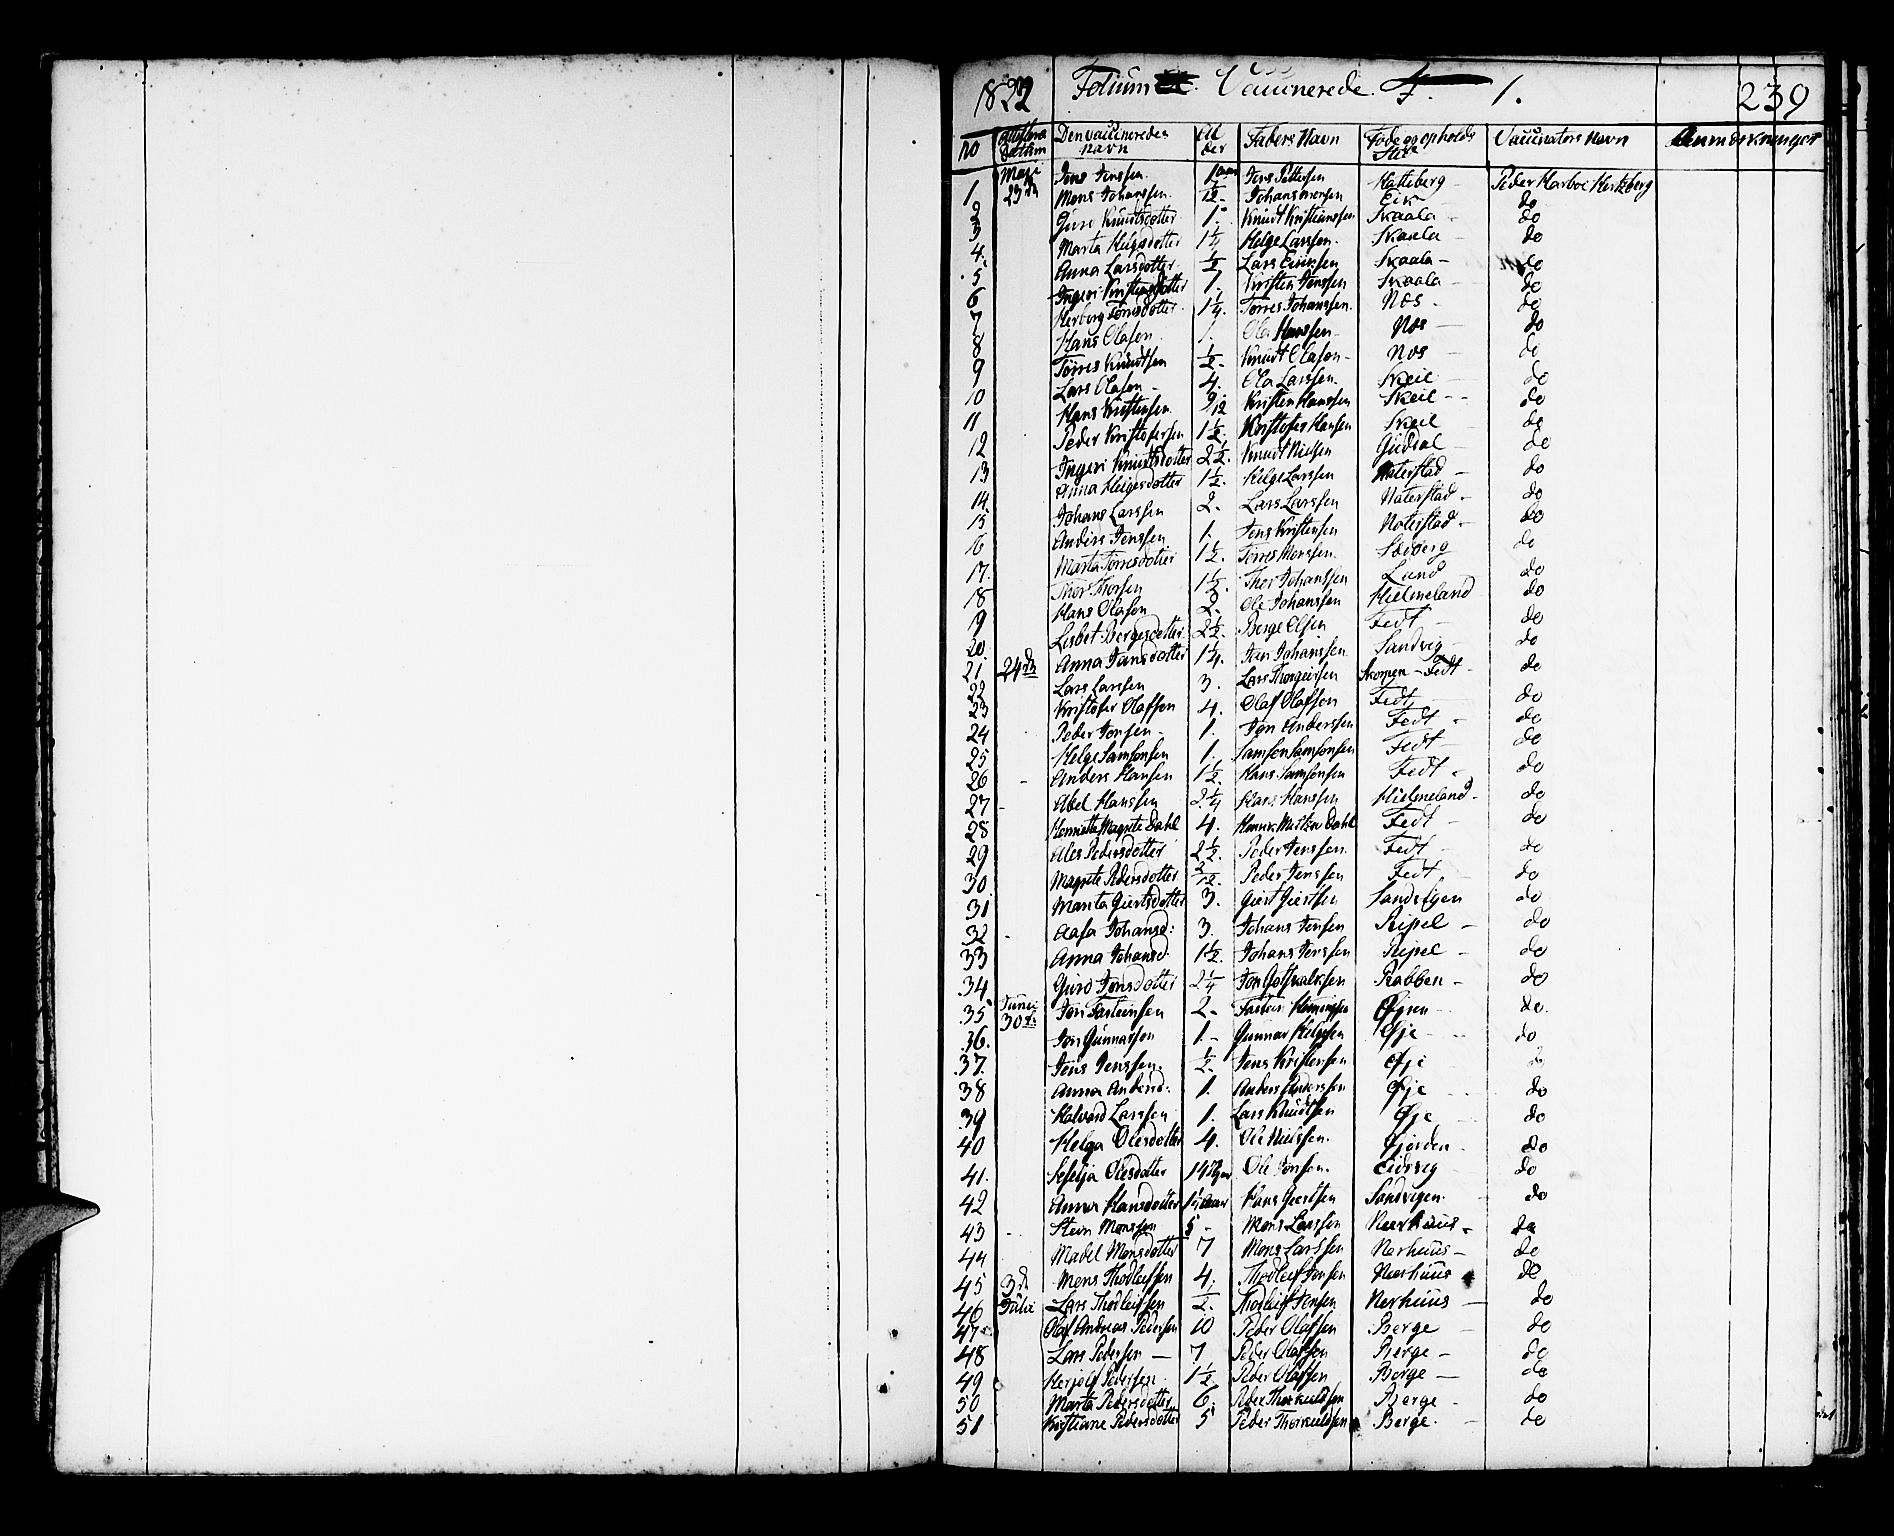 1822 Folium Vaccinerede F. 1. 239
No Datum Den vaccineredes Navn Alder Faders Navn Føde og opholds Sted Vaccinators Navn Anmærkninger
1. Maji 23de Jens Jenssen. 1 aar Jens Pettersen Hatteberg Peder Harboe Hertzberg
2 Mons Johanssen. 1/12 Johans Monsen Eik do
3 Guro Knudtsdotter 1. Knudt Kristianssen Skaala do
4. Marta Helgesdotter 1 1/4 Helge Larssen. Skaala do
5 Anna Larsdotter 1/2 Lars Eriksen Skaala do
6 Ingeri Kristensdotter 1. Kristen Jenssen Skaala do
7 Herborg Torresdotter 1 1/4. Torres Johanssen. Nos do
8 Hans Olason 1. Ola Hanssen Nos do
9 Tørres Knudtsen 1/2. Knudt Olason Nos do
10 Lars Olason 4. Ola Larssen. Skeil do
11 Hans Kristensen 9/12 Kristen Hanssen Skeil do
12 Peder Kristofersen 1 1/2. Kristofer Hansen Skeil do
13 Ingeri Knudtsdotter 2 1/2. Knudt Nielsen Gudsal do
14 Anna Helgesdotter 1 1/2. Helge Larssen Naterstad do
15 Johans Larssen 2. Lars Larssen Naterstad do
16 Anders Jenssen 1. Jens Kristensen Naterstad do
17. Marta Torresdotter 1 1/2. Torres Monsen. Sæberg do
18 Thor Thorsen 1 1/2. Thor Johanssen Lund do
19 Hans Olason 2. Ole Johanssen Hielmeland do
20. Lisbet Bergesdotter 2 1/2. Berge Olsen Fedt do
21 24de Anna Jansdotter 1 1/4. Jan Johanssen Sandvig do
22 Lars Larssen 3. Lars Thorgiersen Skorpen - Fedt do
23 Kristofer Olafson 4. Olaf Olafson Fedt do
24 Peder Jonsen 1. Jon Anderssen Fedt do
25 Helge Samsonsen 1. Samson Samsonsen Fedt do
26 Anders Hansen 1 1/2. Hans Samsonsen Fedt do
27 Abel Hanssen 2 1/4 Hans Hanssen Hielmeland do
28 Henrietta Magrete Dahl 4. Henrik Meltzer Dahl Fedt do
29 Ales Pedersdotter 2 1/2. Peder Jenssen. Fedt do
30 Magrete Pedersdotter 2/12. Peder Jenssen Fedt do
31 Marita Giertsdotter 3. Giert Giertsen Sandvigen do
32 Aasa Johansd: 3. Johans Jensen Seipel do
33 Anna Johansd. 1 1/2. Johans Jenssen Seipel do
34 Guro Jonsdotter 2 1/4 Jon Gotskalksen Rabben do
35 Junii 30te Jon Fasteinsen 2. Fastein Øjen do.
36. Jon Gunnarson 1. Gunnar Helgesen Øje do
37. Jens Jenssen. 1/2. Jens Kristensen Øje do
38 Anna Andersd: 1. Anders Anderssen Øje do
39 Halvard Larssen 1. Lars Knudtsen Øje do
40 Helga Olesdotter 4. Ole Nielssen. Gjerden do
41. Seselja Olesdotter 14 Uger Ole Jonsen. Eidsvig do
42 Anna Hansdotter 1 1/2 aar Hans Giertsen Sandvigen. do
43 Stein Monssen 5 Mons Larssen Nerhuus do
44 Madel Monsdotter 7 Mons Larssen Nerhuus do
45 3de Mons Thodleifsen 4. Thodleif Jonsen Nerhuus do
46 Julii Lars Thodleifsen 1/2. Thodleif Jonsen Nerhuus do
47 Olaf Andreas Pedersen 10 Peder Olafsen Berge do
48 Lars Pedersen 7 Peder Olafson Berge do
49 Herjolf Pedersen. 1 1/2. Peder Olafsen Berge do
50 Marta Pedersdotter 6. Peder Thorkildsen Berge do
51 Kristiane Pedersdotter 5 Peder Thorkildsen Berge. do